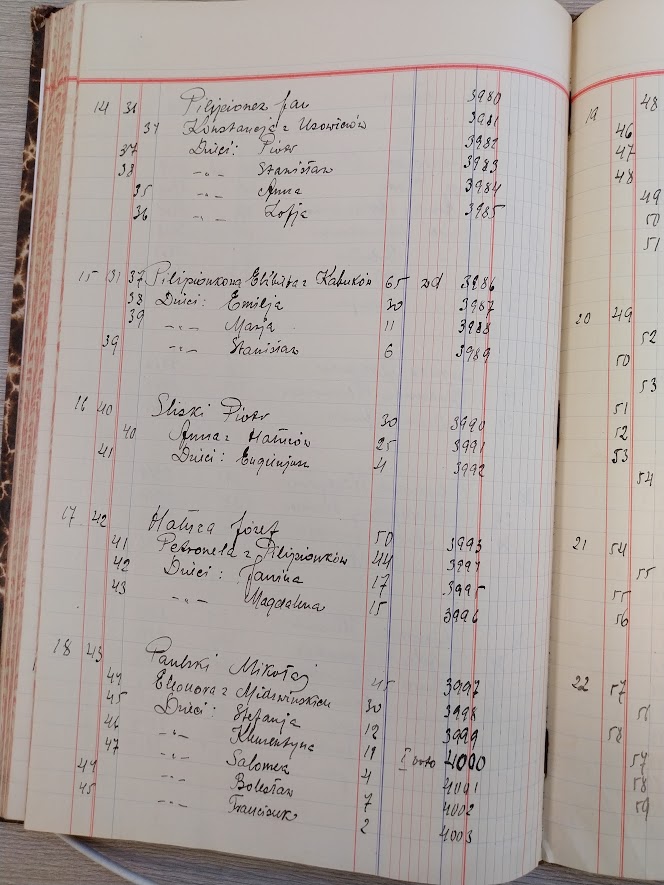 14 36 Pilipionez Jan 3980
37 Konstancja z Uzowiczów 3981
37 Dzieci: Piotr 3982
38 -"- Stanisław 3983
35 -"- Anna 3984
36 -"- Zofja 3985
15 31 37 Pilipionkowa Elżbieta z Kabuków 65 3986
38 Dzieci: Emilja 30 3987
39 -"- Marja 11 3988
39 -"- Stanisław 6 3989
16 40 Sliski Piotr 30 3990
40 Anna z 25 3991
41 Dzieci: Eugenjusz 4 3992
17 42 Józef 50 3993
41 Petronela z Pilipionków 44 3994
42 Dzieci: Janina 17 3995
43 -"- Magdalena 15 3996
18 43 Paulski Mikołaj 45 3997
44 Eleonora z 30 3998
45 Dzieci: Stefanja 12 3999
46 -"- Klementyna 11 4000
47 -"- Salomea 4 4001
44 -"- Bolesław 7 4002
45 -"- Franciszek 2 4003
48
19 46
47
48
49
50
51
20 49
52
50
53
51
52
53
54
21 54
55
55
56
22 57
58
57
58
59